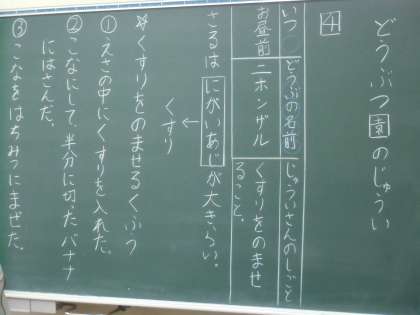 どうぶつ園のじゅうい
4
いつ
どうぶの名前
じゅういさんのしごと
お昼前
ニホンザル
くすりをのませ
ること。
さるはにがいあじが大きらい。
←
くすり
☆くすりをのませるくふう
①えさの中にくすりを入れた。
②こなにして、半分に切ったバナナ
にはさんだ。
③こなをはちみつにまぜた。